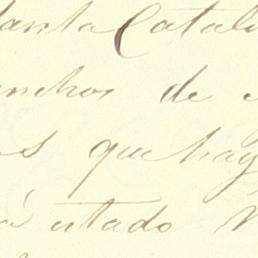 Santa Catal
nchos de
s que hay
á estado